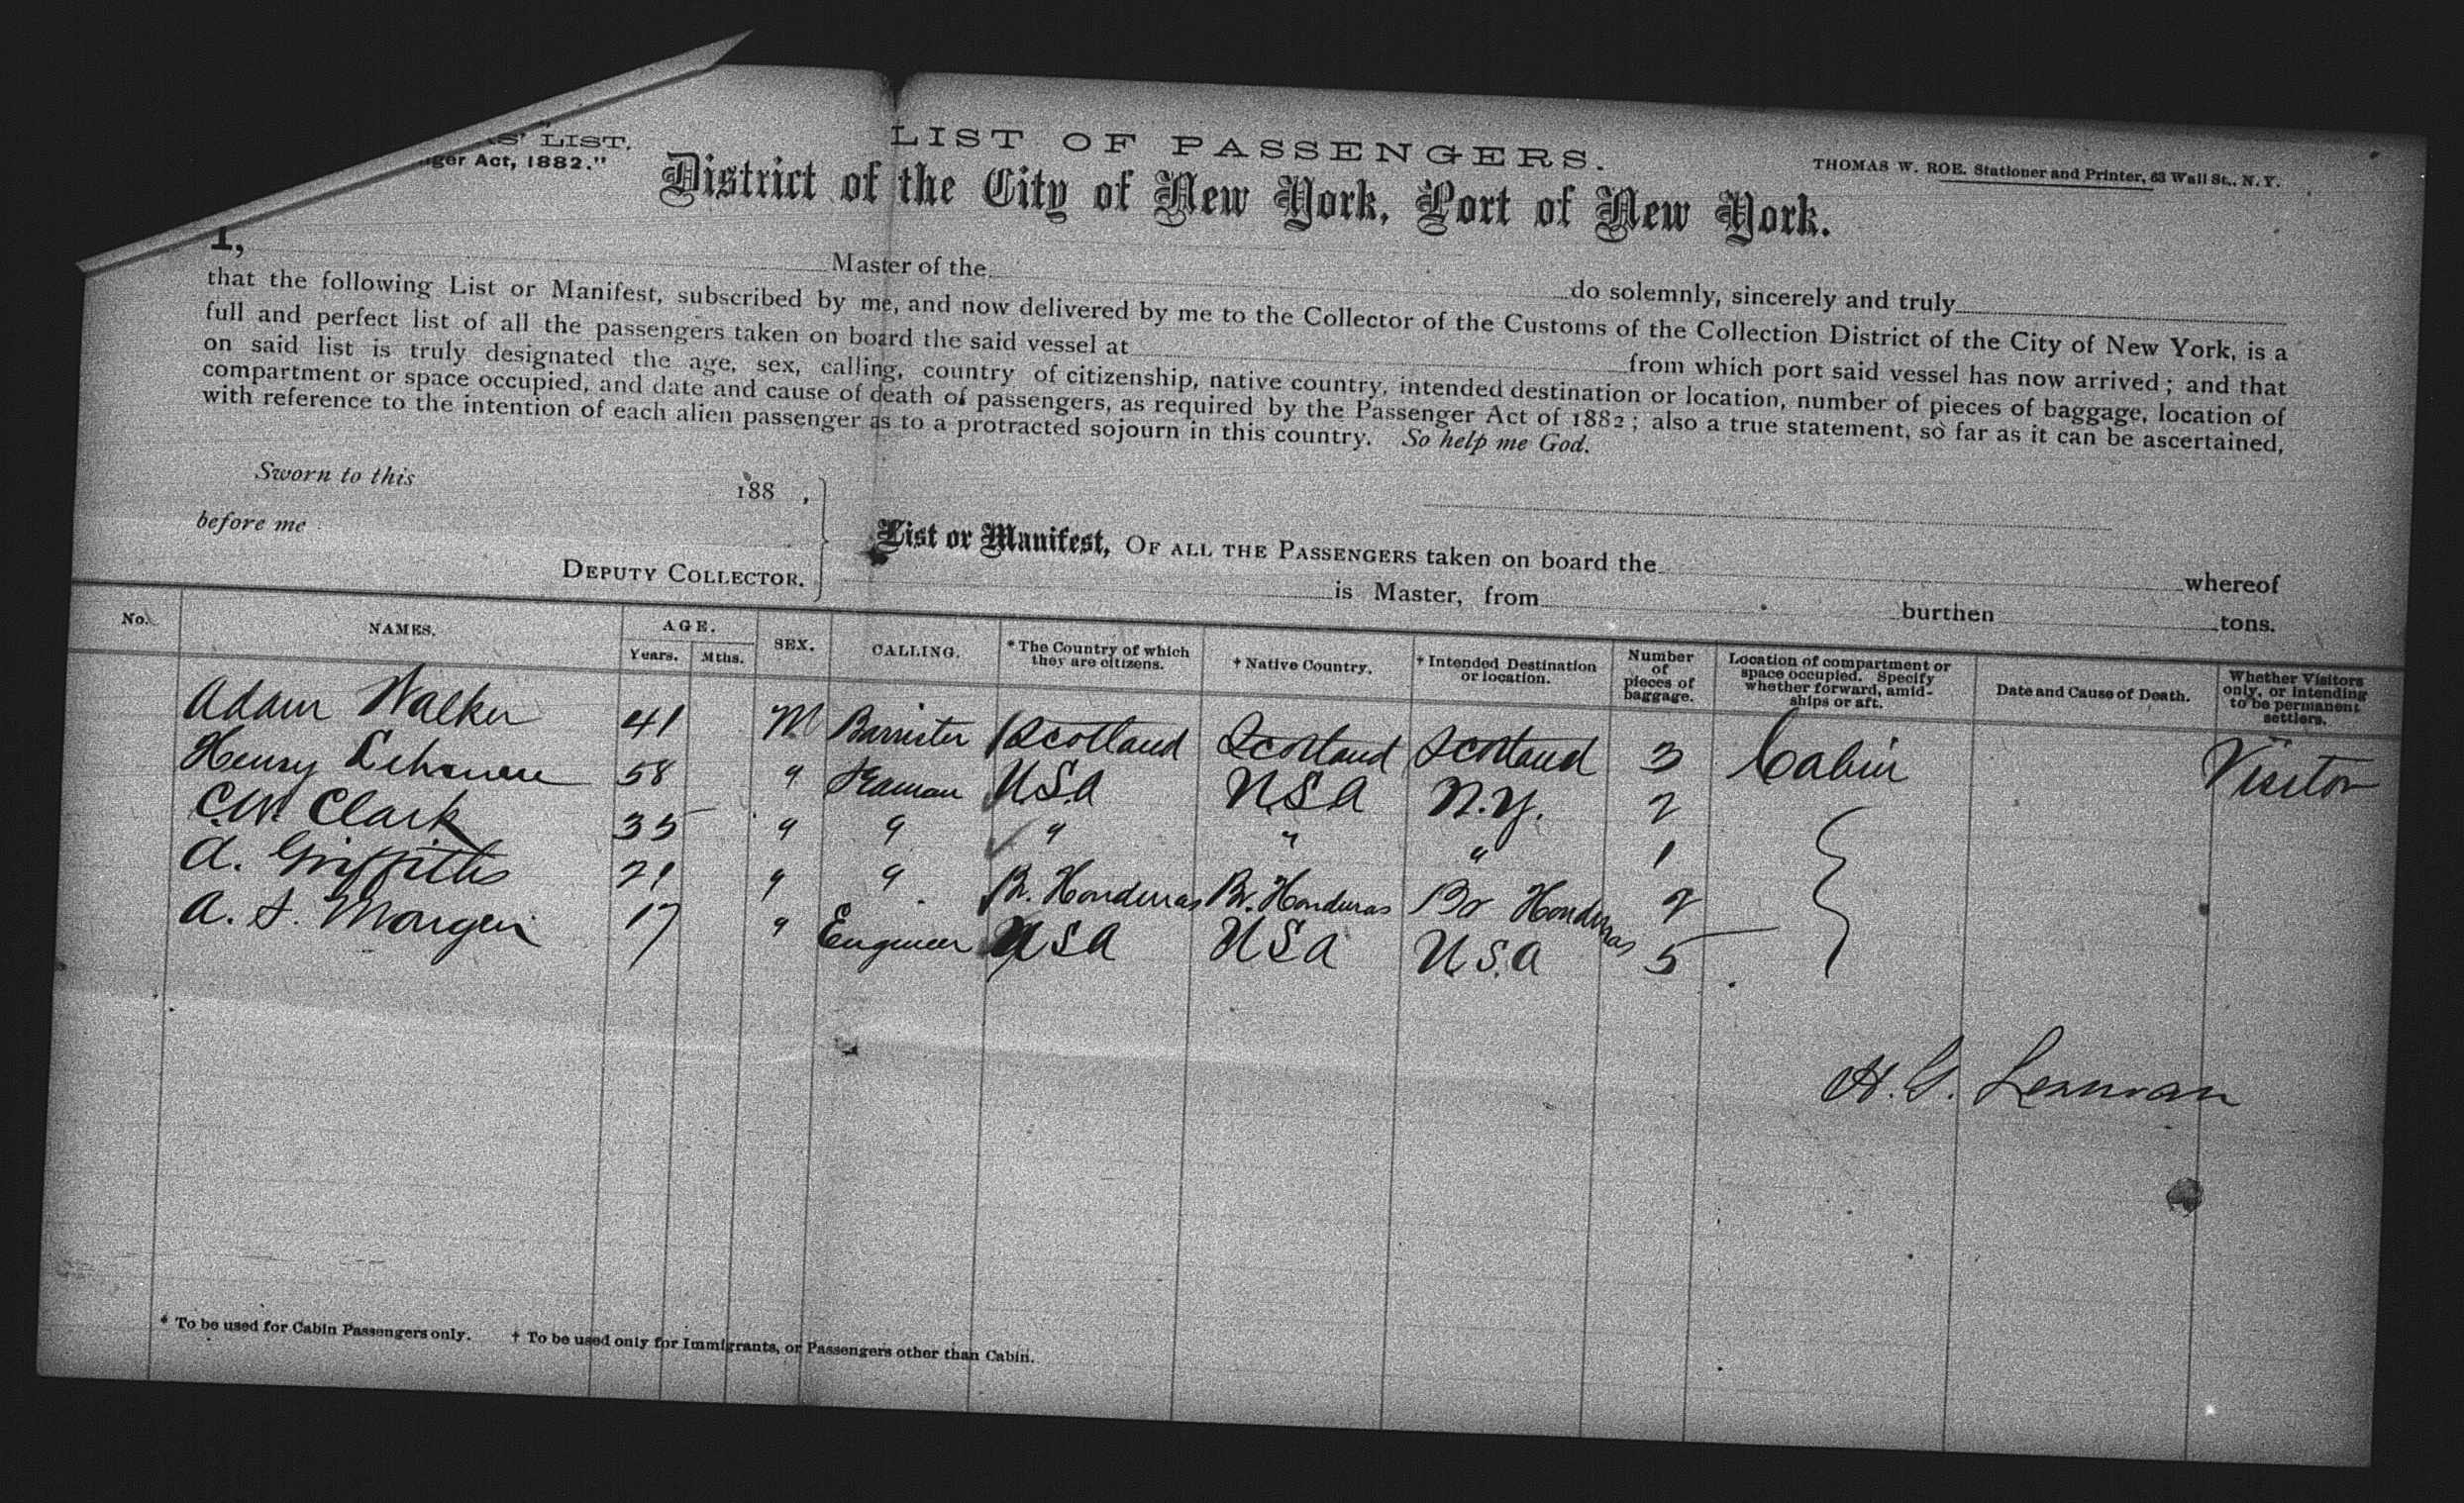 S' LIST.
ger Act, 1882."
LIST OF PASSENGERS.
THOMAS W. ROE. Stationer and Printer, 63 Wall St., N.Y.
District of the City of New York, Port of New York.
I, Master of the do solemnly, sincerely and truly
that the following List or Manifest, subscribed by me, and now delivered by me to the Collector of the Customs of the Collection District of the City of New York, is a
full and perfect list of all the passengers taken on board the said vessel at from which port said vessel has now arrived; and that
on said list is truly designated the age, sex, calling, country of citizenship, native country, intended destination or location, number of pieces of baggage, location of
compartment or space occupied, and date and cause of death of passengers, as required by the Passenger Act of 1882; also a true statement, so far as it can be ascertained,
with reference to the intention of each alien passenger as to a protracted sojourn in this country. So help me God.
Sworn to this 188 ,
before me
DEPUTY COLLECTOR.
List or Manifest, OF ALL THE PASSENGERS taken on board the whereof
is Master, from burthen tons.
No. NAMES. AGE. Years. Mths. SEX. CALLING. * The Country of which they are citizens. † Native Country. † Intended Destination or location. Number of pieces of baggage. Location of compartment or space occupied. Specify whether forward, amidships or aft. Date and Cause of Death. Whether Visitors only, or intending to be permanent settlers.
Adam Walker 41 M Barrister Scotland Scotland Scotland 3 Cabin Visitor
Henry 58 " Seaman USA USA N.Y. 2
C.W. Clark 35 " " " " " 1
A. Griffiths 21 " " Br. Honduras Br. Honduras Br Honduras 2
A. S. Morgan 17 " Engineer USA USA U.S.A 5
H. G.
* To be used for Cabin Passengers only. † To be used only for Immigrants, or Passengers other than Cabin.